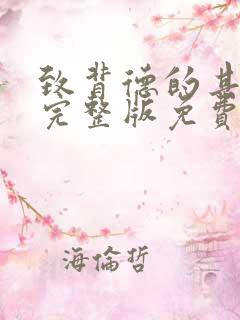 致背德的其
完整版免費
海倫哲